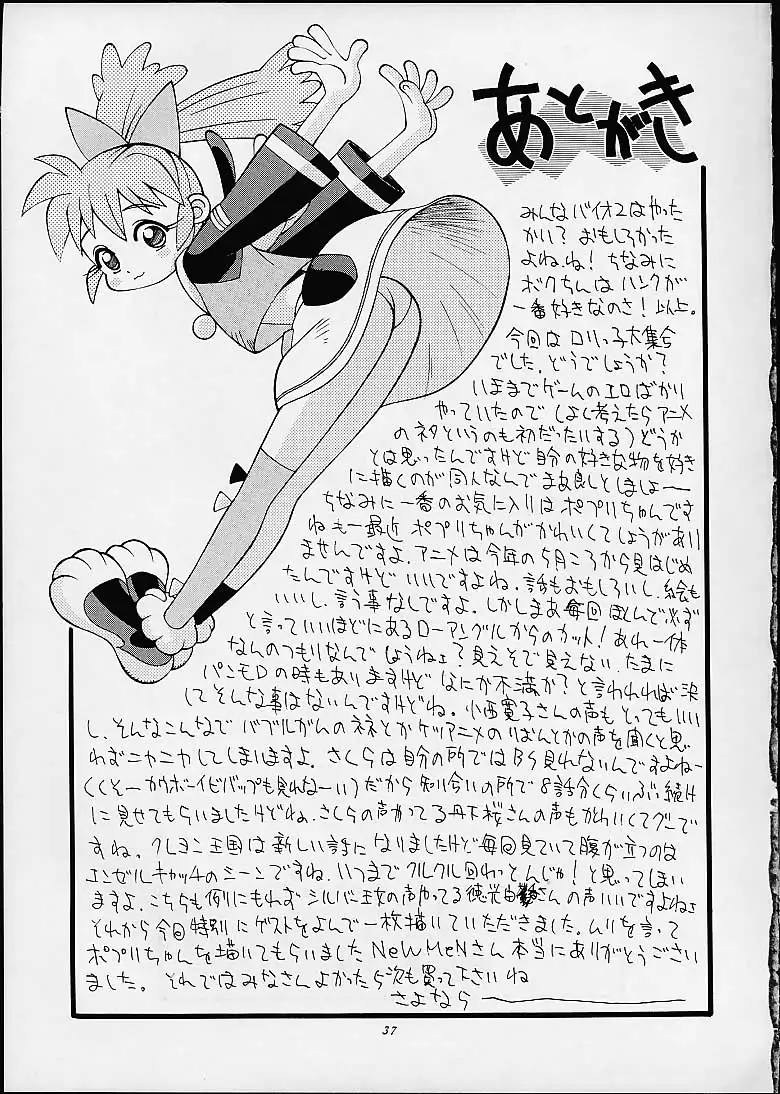 あとがき
みんなバイオ2はやった
かい？おもしろかった
よね、ね！ちなみに
ボクちんはハンクが
一番好きなのさ！以上。
今回はロリっ子大集合
でした。どうでしょうか？
いままでゲームのエロばかり
やっていたので（よく考えたらアニメ
のネタというのも初だったりする）どうか
とは思ったんですけど自分の好きな物を好き
に描くのが同人なんでまあ良しとしましょー
ちなみに一番のお気に入りはポプリちゃんです
ねもー最近ポプリちゃんがかわいくてしょうがあり
ませんですよ。アニメは今年の5月ころから見はじめ
たんですけどいいですよね。話もおもしろいし、絵も
いいし、言う事なしですよ。しかしまあ毎回ほとんど必ず
と言っていいほどにあるローアングルからのカット！あれ一体
なんのつもりなんでしょうねェ？見えそで見えない。たまに
パンモロの時もありますけどなにか不満か？と言われれば決
してそんな事はないんですけどね。小西寛子さんの声もとってもいい
し、そんなこんなでバブルがんのネネとかケツアニメのりぼんとかの声を聞くと思
わずニヤニヤしてしまいますよ。さくらは自分の所ではBS見れないんですよねー
（くそーカウボーイビバップも見れなーい）だから知り合いの所で8話分くらいぶっ続け
に見せてもらいましたけどね。さくらの声やってる丹下桜さんの声もかわいくてグーで
すね。クレヨン王国は新しい話になりましたけど毎回見ていて腹が立つのは
エンゼルキャッチのシーンですね。いつまでクルクル回わっとんじゃ！と思ってしまい
ますよ。こちらも例にもれずシルバー王女の声やってる徳光由さんの声いいですよねェ
それから今回特別にゲストをよんで一枚描いていただきました。ムリを言って
ポプリちゃんを描いてもらいましたNeWMeNさん本当にありがとうござい
ました。それではみなさんよかったら次も買って下さいね
さよなら――
37